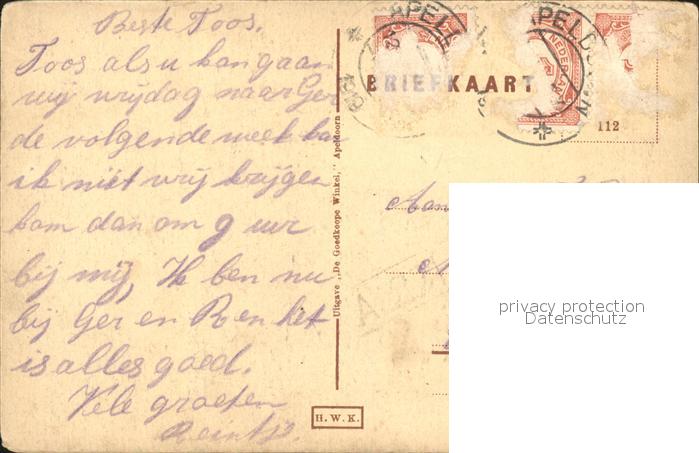 Beste Toos.
Toos als u kan gaan
wij vrijdag naar Ger
de volgende week kan
ik niet vrij krijgen
kom dan om 9 uur
bij mij, Ik ben nu
bij Ger en R en het
is alles goed.
Vele groeten
Reintje.
Uitgave „De Goedkoope Winkel," Apeldoorn
H.W.K.
BRIEFKAART
APELD
NEDER
112
Aan
privacy protection
Datenschutz